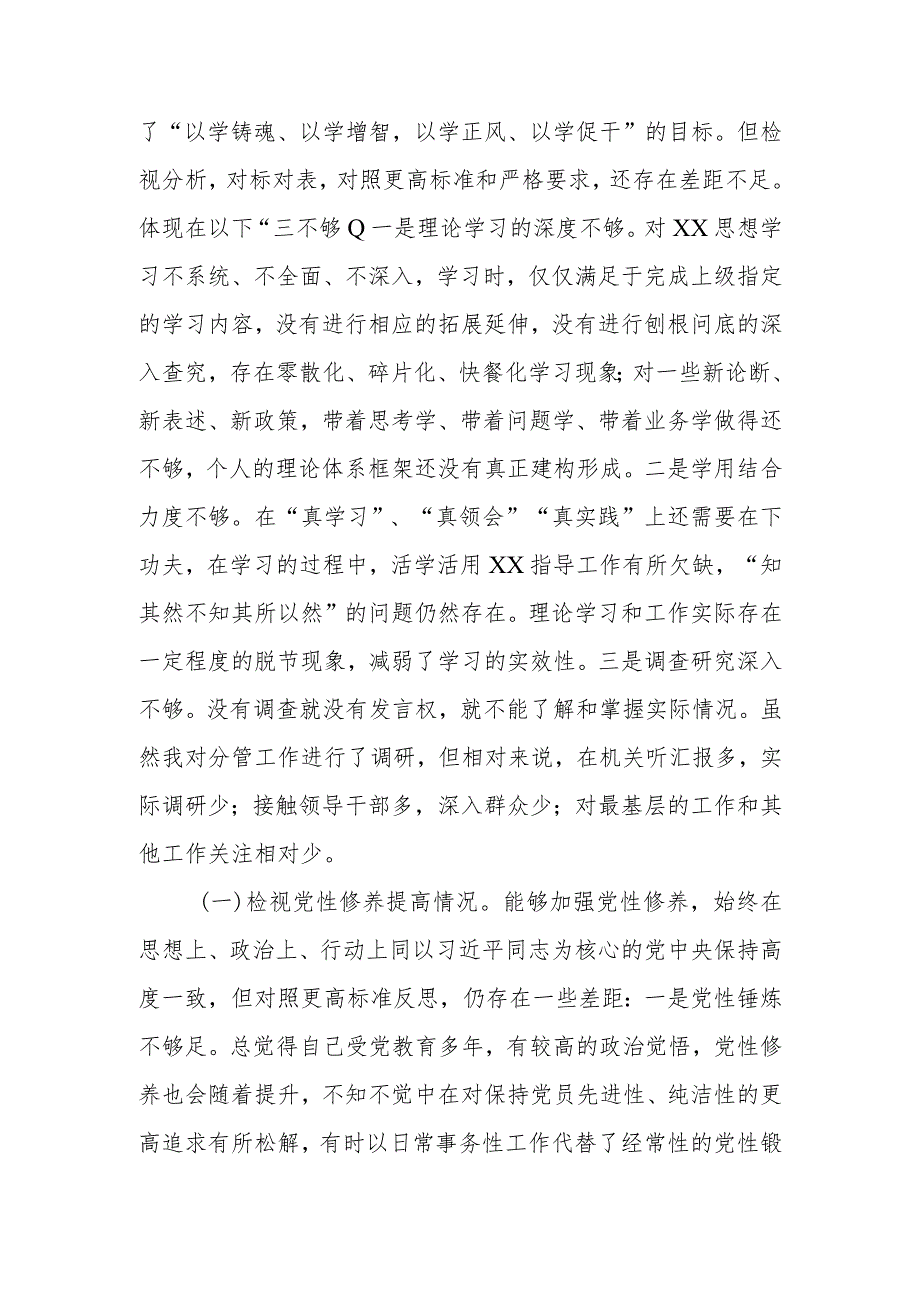 了“以学铸魂、以学增智，以学正风、以学促干”的目标。但检
视分析，对标对表，对照更高标准和严格要求，还存在差距不足。
体现在以下“三不够Q一是理论学习的深度不够。对XX思想学
习不系统、不全面、不深入，学习时，仅仅满足于完成上级指定
的学习内容，没有进行相应的拓展延伸，没有进行刨根问底的深
入查究，存在零散化、碎片化、快餐化学习现象；对一些新论断、
新表述、新政策，带着思考学、带着问题学、带着业务学做得还
不够，个人的理论体系框架还没有真正建构形成。二是学用结合
力度不够。在“真学习”、“真领会”“真实践”上还需要在下
功夫，在学习的过程中，活学活用XX指导工作有所欠缺，“知
其然不知其所以然”的问题仍然存在。理论学习和工作实际存在
一定程度的脱节现象，减弱了学习的实效性。三是调查研究深入
不够。没有调查就没有发言权，就不能了解和掌握实际情况。虽
然我对分管工作进行了调研，但相对来说，在机关听汇报多，实
际调研少；接触领导干部多，深入群众少；对最基层的工作和其
他工作关注相对少。
(一)检视党性修养提高情况。能够加强党性修养，始终在
思想上、政治上、行动上同以习近平同志为核心的党中央保持高
度一致，但对照更高标准反思，仍存在一些差距：一是党性锤炼
不够足。总觉得自己受党教育多年，有较高的政治觉悟，党性修
养也会随着提升，不知不觉中在对保持党员先进性、纯洁性的更
高追求有所松解，有时以日常事务性工作代替了经常性的党性锻